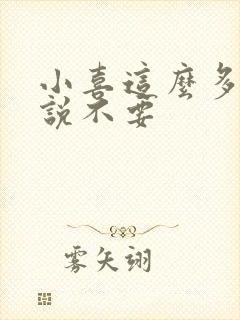 小喜這麼多
說不要
雾矢翊